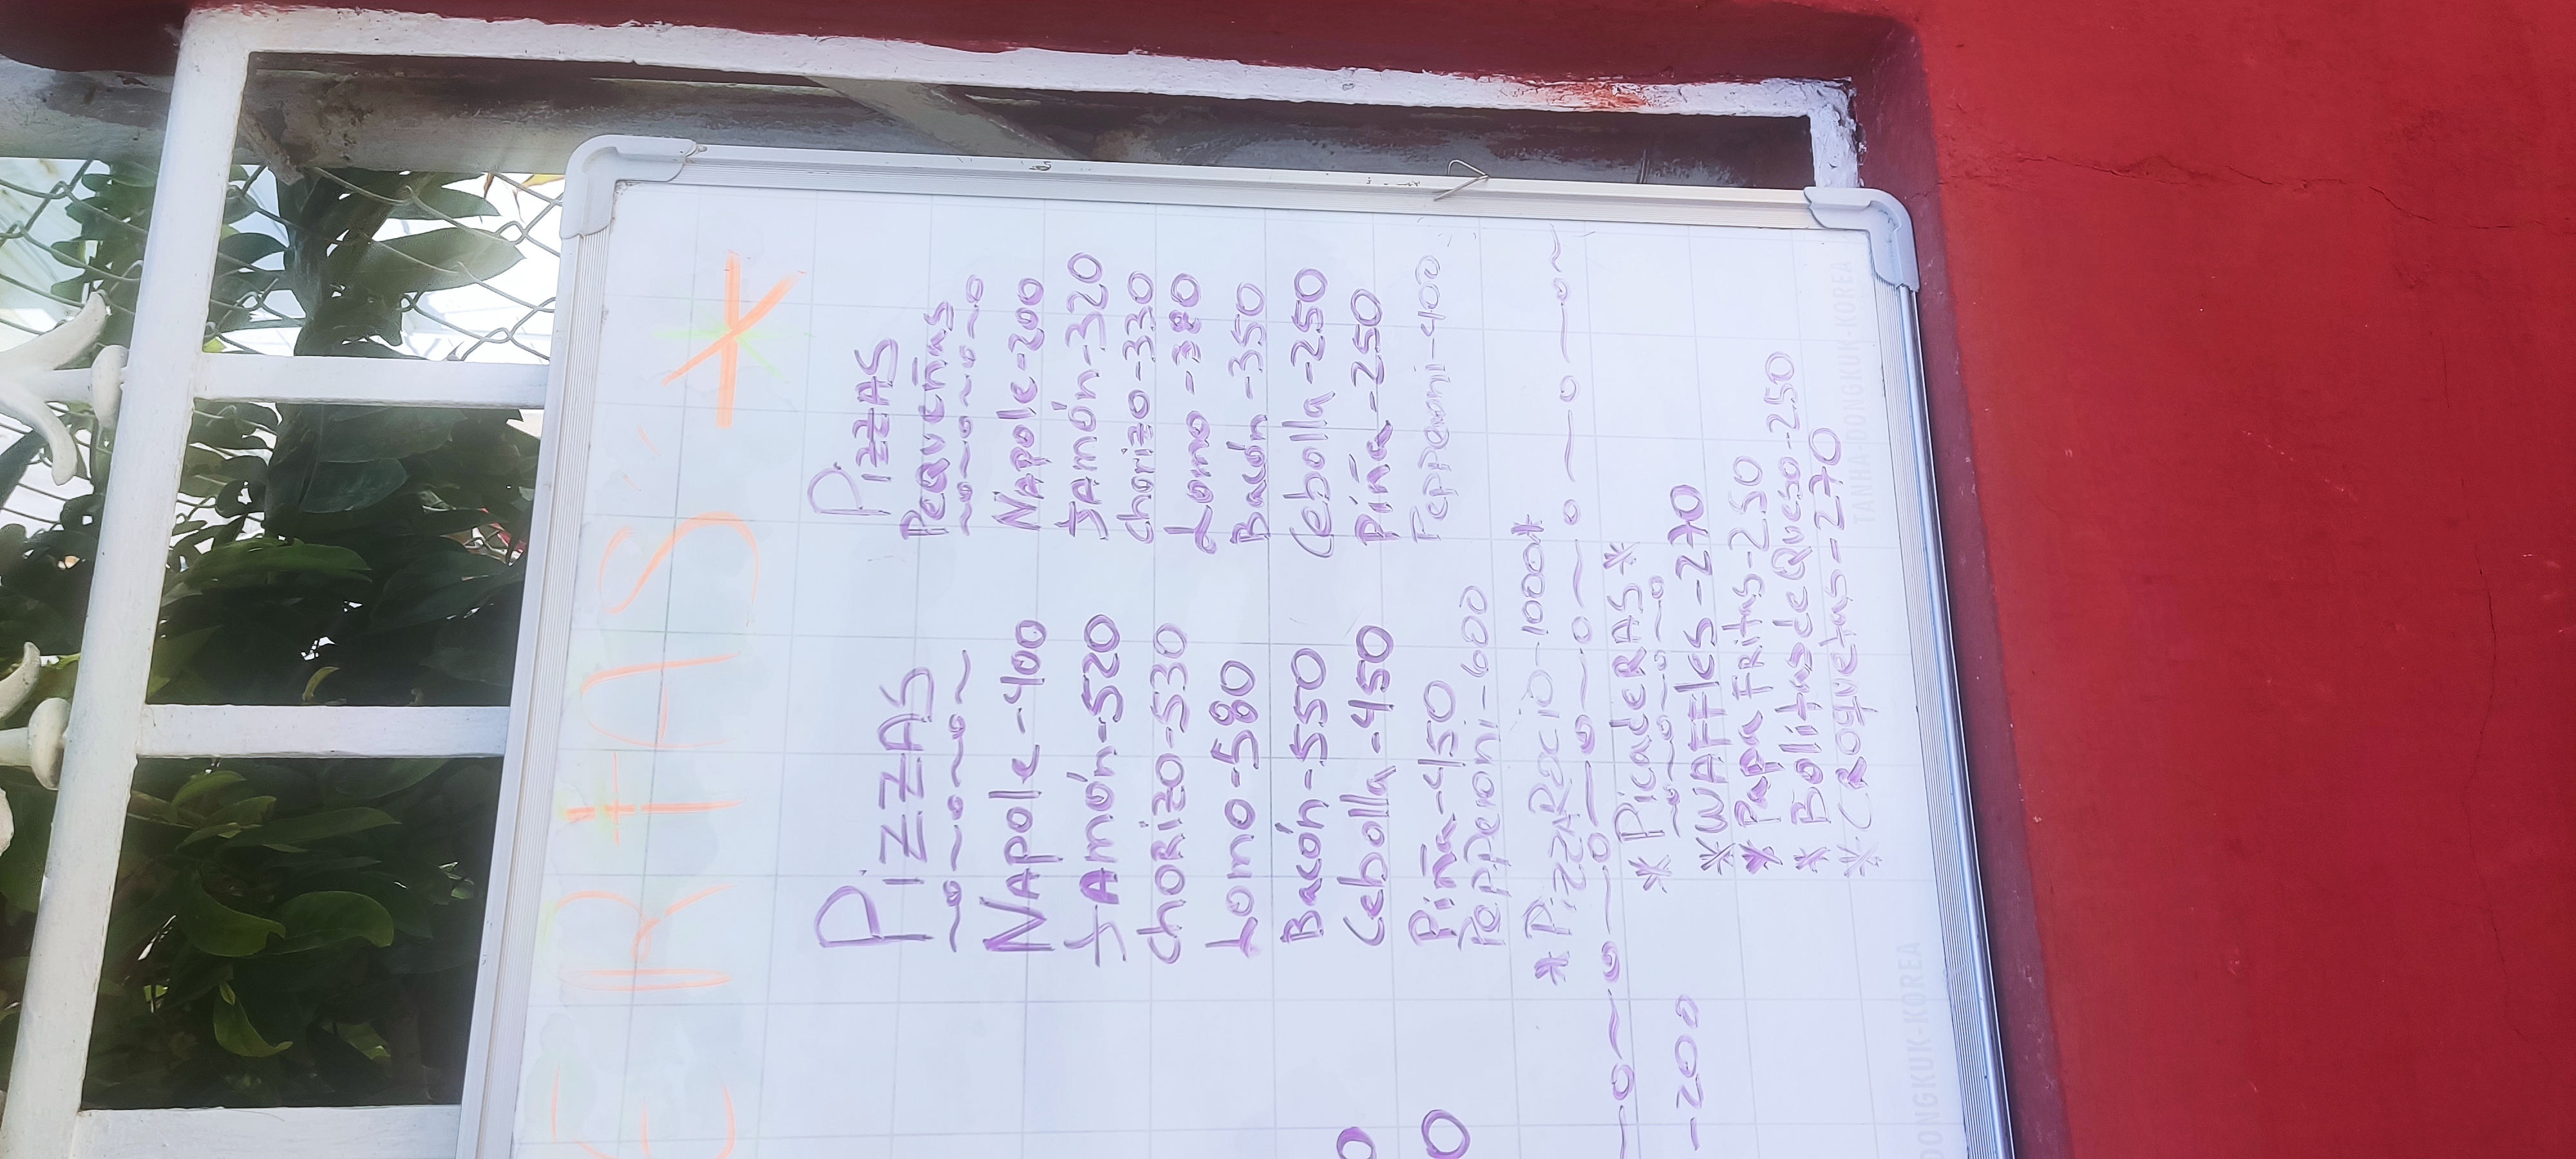 ERIAS
Pizzas
Napole-400
Jamón-520
Chorizo-530
Lomo-580
Bacón-550
Cebolla-450
Piña-450
Pepperoni-600
*Pizza Rocio-1000*
Pizzas
Pequeñas
Napole-200
Jamón-320
Chorizo-330
Lomo-380
Bacón-350
Cebolla-250
Piña-250
Pepperoni-400
0
0
-200
*Picaderas*
*Waffles-270
*Papa Fritas-250
*Bolitas de Queso-250
*Croquetas-270
DONGKUK-KOREA
TANHA-DONGKUK-KOREA